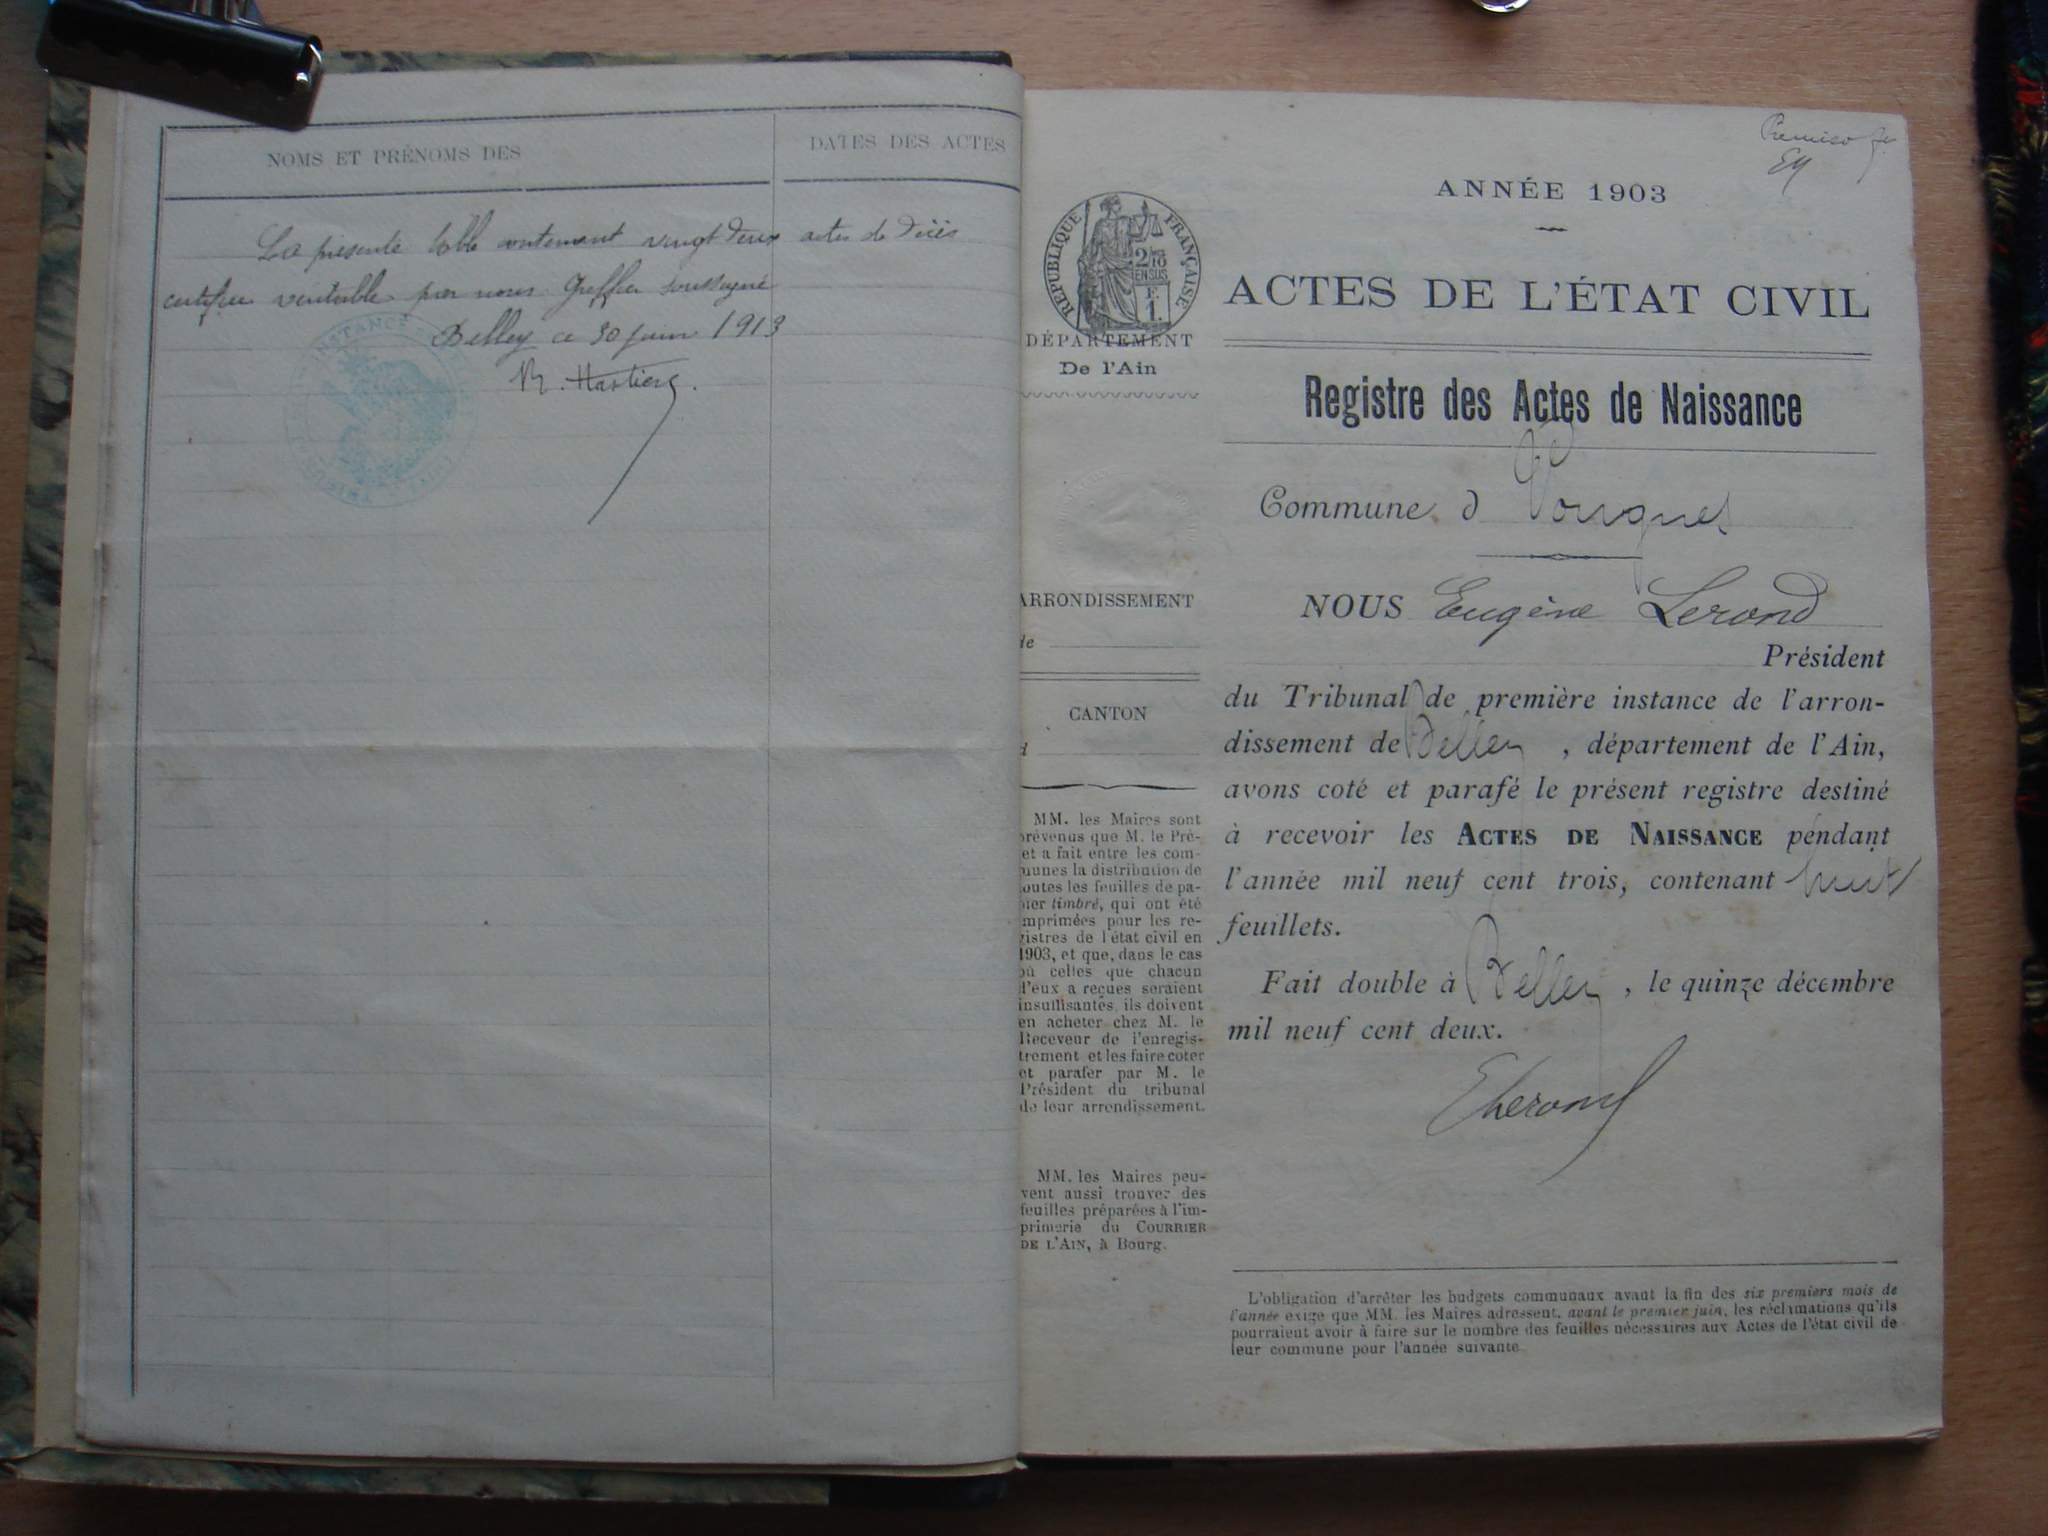 NOMS ET PRÉNOMS DES
DATES DES ACTES
La présente table contenant vingt deux actes de décès
certifiée véritable par nous Greffier soussigné
Belley ce 30 juin 1913
Premier
ANNÉE 1903
RÉPUBLIQUE FRANÇAISE
2/10
EN SUS
F.
1.
ACTES DE L'ÉTAT CIVIL
DÉPARTEMENT
De l'Ain
Registre des Actes de Naissance
Commune d
ARRONDISSEMENT
de
CANTON
d
NOUS Eugène Lerond
Président
du Tribunal de première instance de l'arron-
dissement de Belley, département de l'Ain,
avons coté et parafé le présent registre destiné
à recevoir les ACTES DE NAISSANCE pendant
l'année mil neuf cent trois, contenant huit
feuillets.
Fait double à Belley, le quinze décembre
mil neuf cent deux.
ELerond
MM. les Maires sont
prévenus que M. le Pré-
et a fait entre les com-
munes la distribution de
toutes les feuilles de pa-
pier timbré, qui ont été
imprimées pour les re-
gistres de l'état civil en
1903, et que, dans le cas
où celles que chacun
d'eux a reçues seraient
insuffisantes, ils doivent
en acheter chez M. le
Receveur de l'enregis-
trement et les faire coter
et parafer par M. le
Président du tribunal
de leur arrondissement.
MM. les Maires peu-
vent aussi trouver des
feuilles préparées à l'im-
primerie du COURRIER
DE L'AIN, à Bourg.
L'obligation d'arrêter les budgets communaux avant la fin des six premiers mois de
l'année exige que MM. les Maires adressent, avant le premier juin, les réclamations qu'ils
pourraient avoir à faire sur le nombre des feuilles nécessaires aux Actes de l'état civil de
leur commune pour l'année suivante